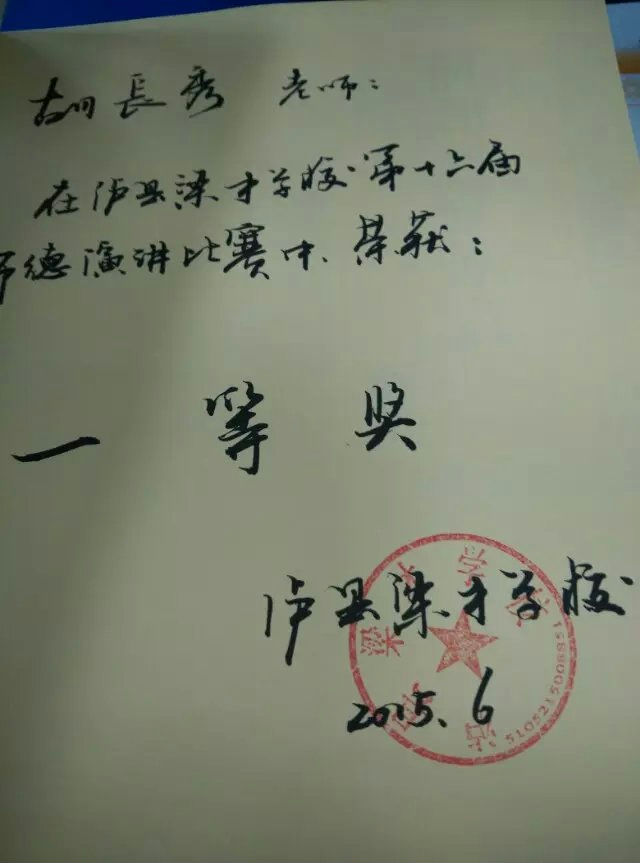 胡長秀 老师:
在泸县梁才学校第十六届
师德演讲比赛中,荣获:
一等奖
泸县梁才学校
2015.6
5105215008851